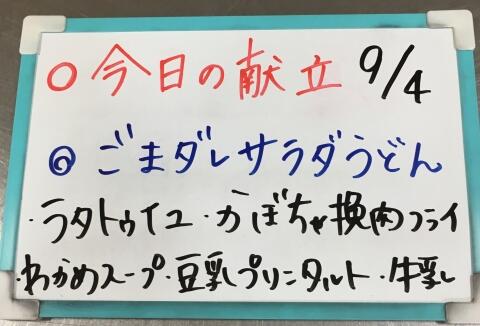 ○今日の献立 9/4
◎ごまダレサラダうどん
・ラタトゥイユ・かぼちゃ挽肉フライ
・わかめスープ・豆乳プリンタルト・牛乳